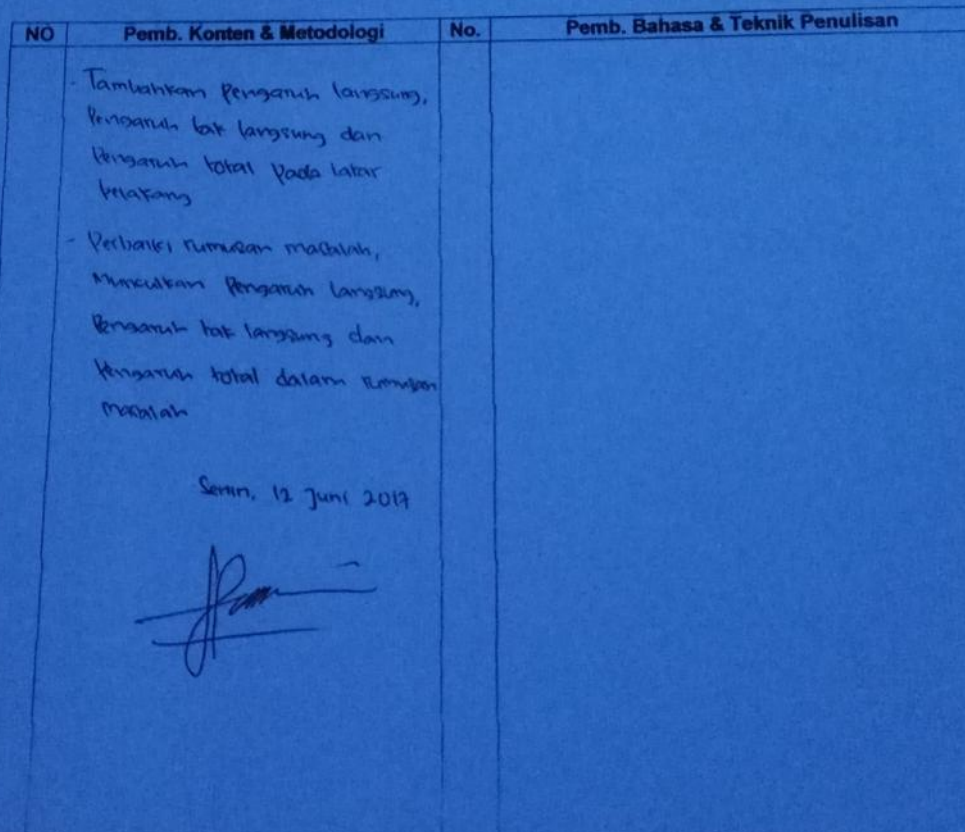 NO Pemb. Konten & Metodologi No. Pemb. Bahasa & Teknik Penulisan
- Tambahkan Pengaruh langsung,
Pengaruh tak langsung dan
Pengaruh total pada latar
belakang
- Perbaiki rumusan masalah,
Munculkan Pengaruh langsung,
Pengaruh tak langsung dan
Pengaruh total dalam rumusan
masalah
Senin, 12 Juni 2017